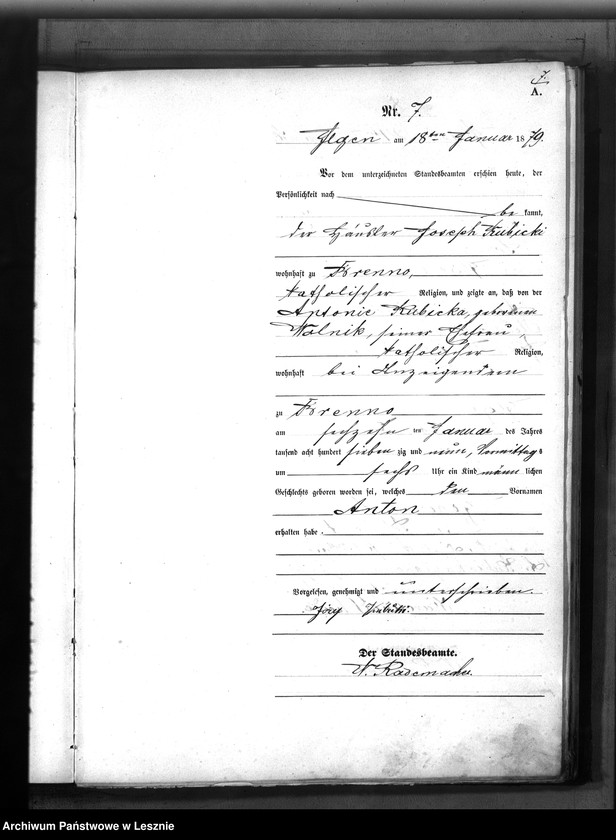 7.
A.
Nr. 7.
Ilgen am 18ten Januar 1879.
Vor dem unterzeichneten Standesbeamten erschien heute, der
Persönlichkeit nach
bekannt,
der Häusler Joseph Kubicki
wohnhaft zu Brenno,
katholischer Religion, und zeigte an, daß von der
Antonie Kubicka, geborenen
Wolnik, seiner Ehefrau,
katholischer Religion,
wohnhaft bei Anzeigendem
zu Brenno
am sechzehn ten Januar des Jahres
tausend acht hundert sieben zig und neun, Vormittags
um sechs Uhr ein Kind männlichen
Geschlechts geboren worden sei, welches den Vornamen
Anton
erhalten habe.
Vorgelesen, genehmigt und unterschrieben.
Józef
Der Standesbeamte.
W. Rademacher.
Archiwum Państwowe w Lesznie